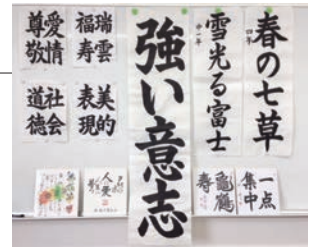 春の七草
四年
雪光る富士
中一年
強い意志
瑞雲
福寿
愛情
尊敬
美的
表現
社会
道徳
一点
集中
亀鶴
寿
人愛